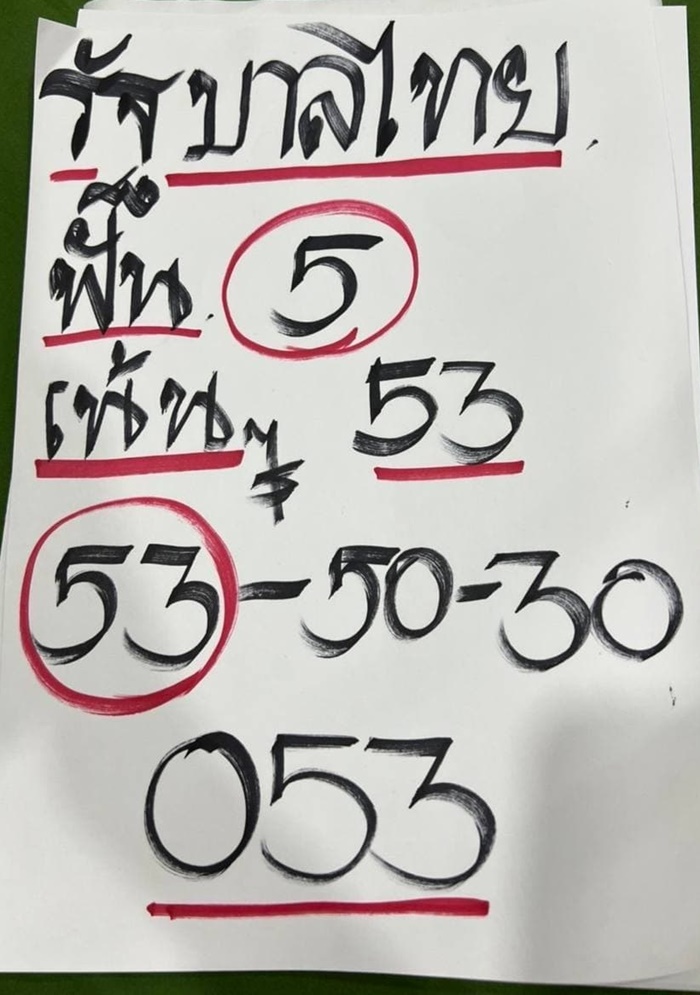 รัฐบาลไทย.
ฟั๊น. 5
เน้นๆ 53
53-50-30
053